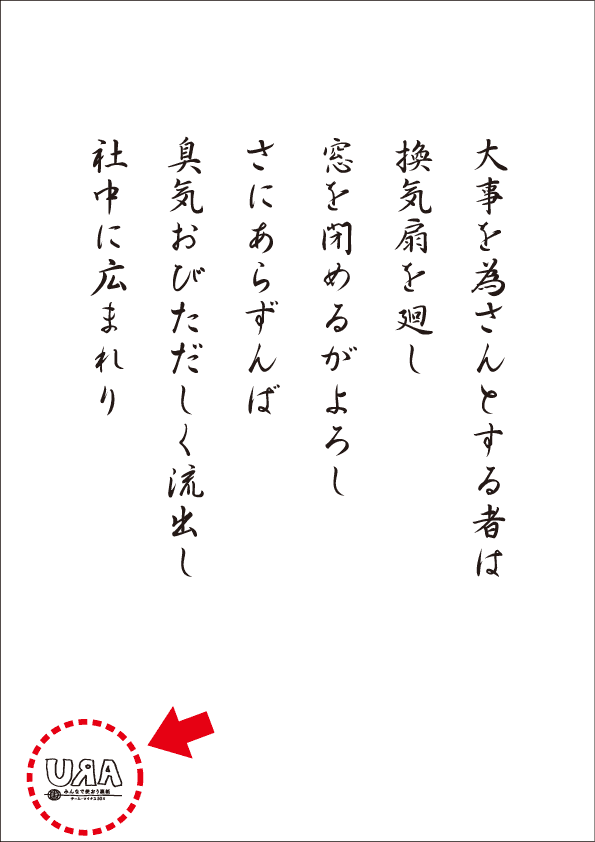 大事を為さんとする者は
換気扇を廻し
窓を閉めるがよろし
さにあらずんば
臭気おびただしく流出し
社中に広まれり
URA
みんなで使おう裏紙
チーム・マイナス50%